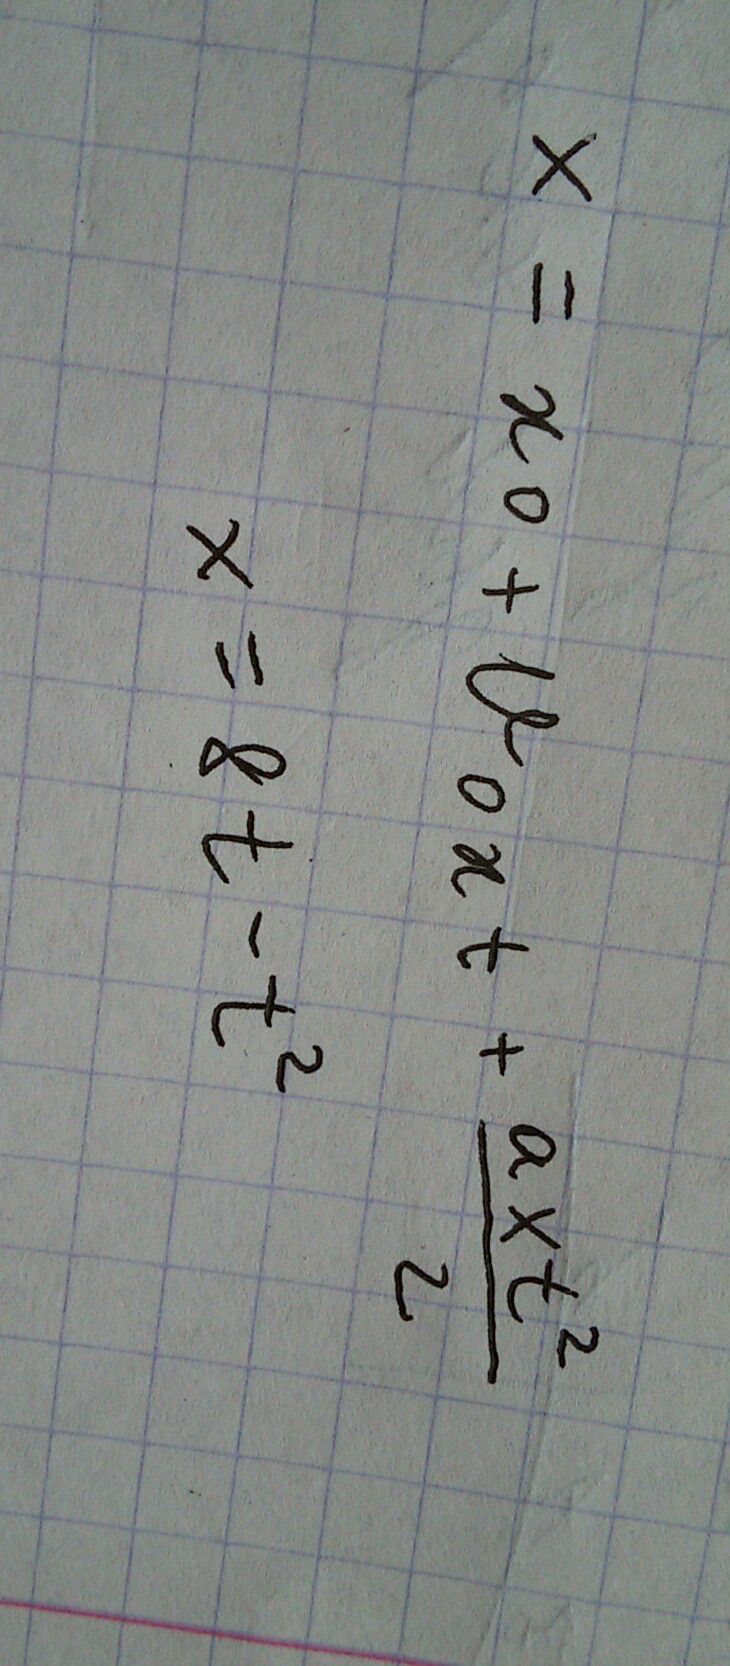 x = x₀ + v₀ₓt + aₓt²/2
x = 8t - t²